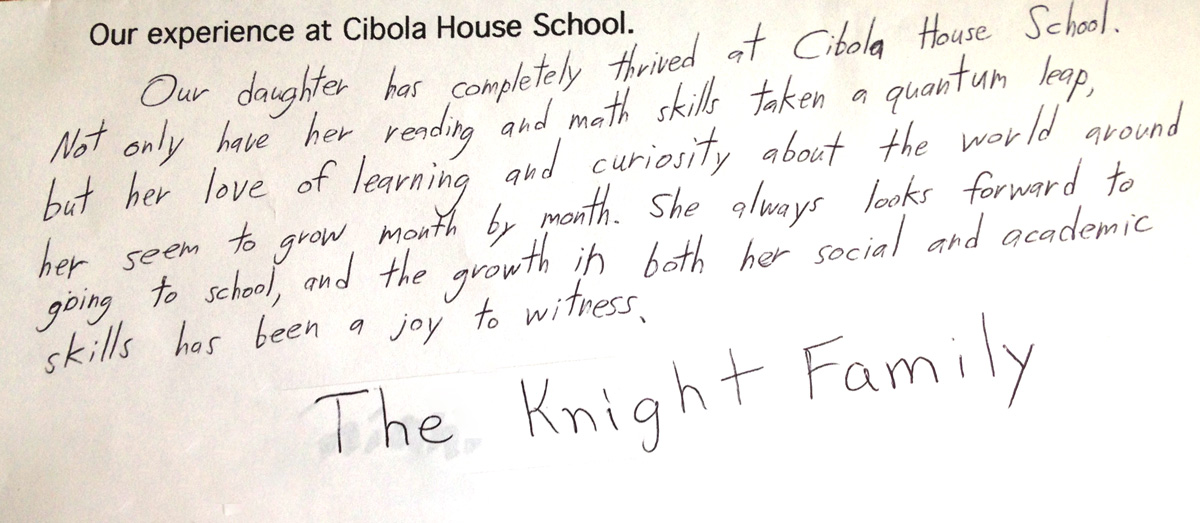 Our experience at Cibola House School.
Our daughter has completely thrived at Cibola House School.
Not only have her reading and math skills taken a quantum leap,
but her love of learning and curiosity about the world around
her seem to grow month by month. She always looks forward to
going to school, and the growth in both her social and academic
skills has been a joy to witness.
The Knight Family